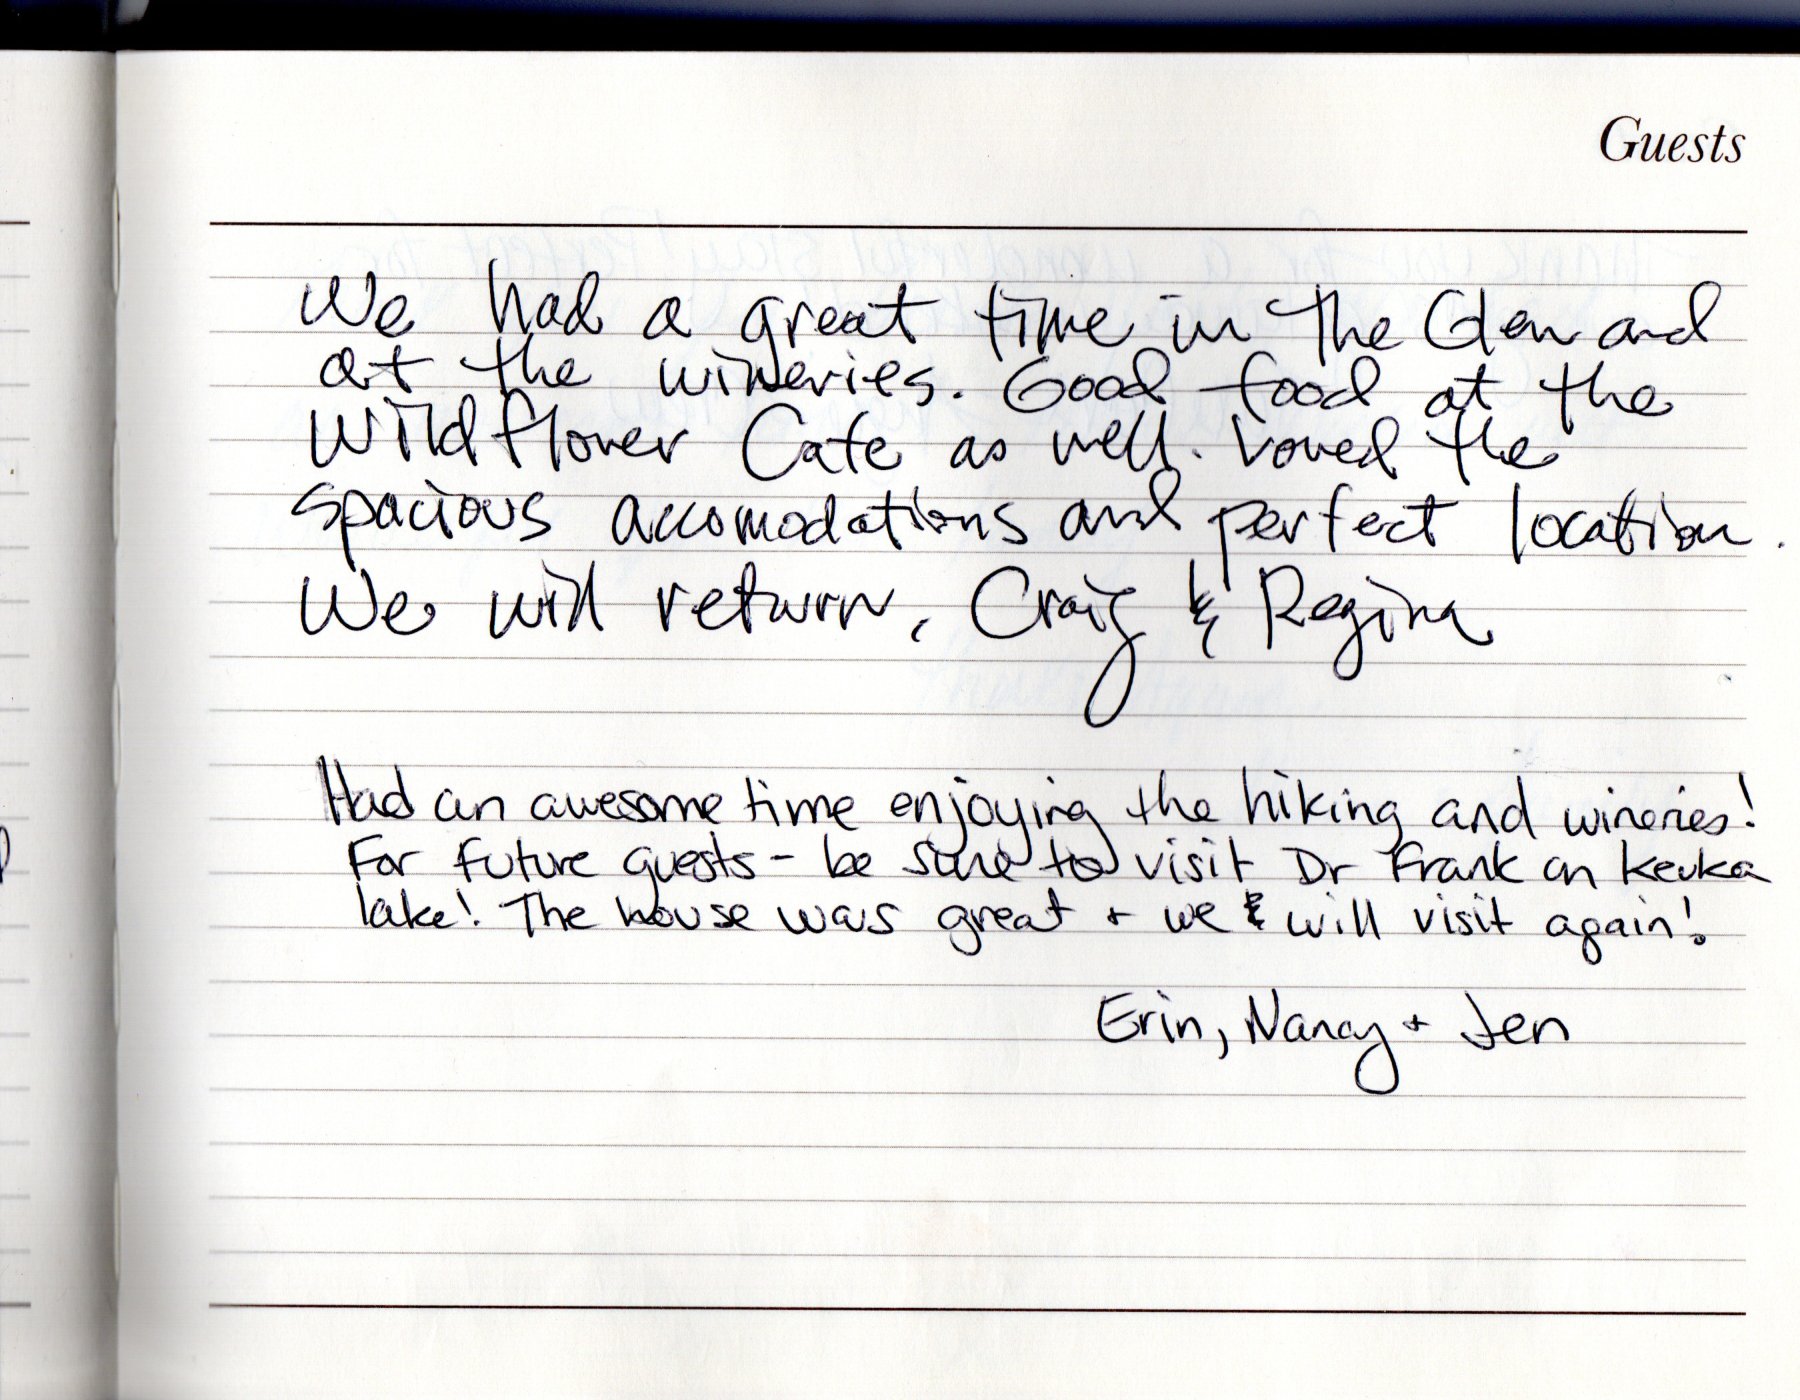 Guests
We had a great time in the Glen and
at the wineries. Good food at the
Wildflower Cafe as well. Loved the
spacious accomodations and perfect location.
We will return, Craig & Regina
Had an awesome time enjoying the hiking and wineries!
For future guests - be sure to visit Dr Frank on Keuka
lake! The house was great + we & will visit again!
Erin, Nancy + Jen